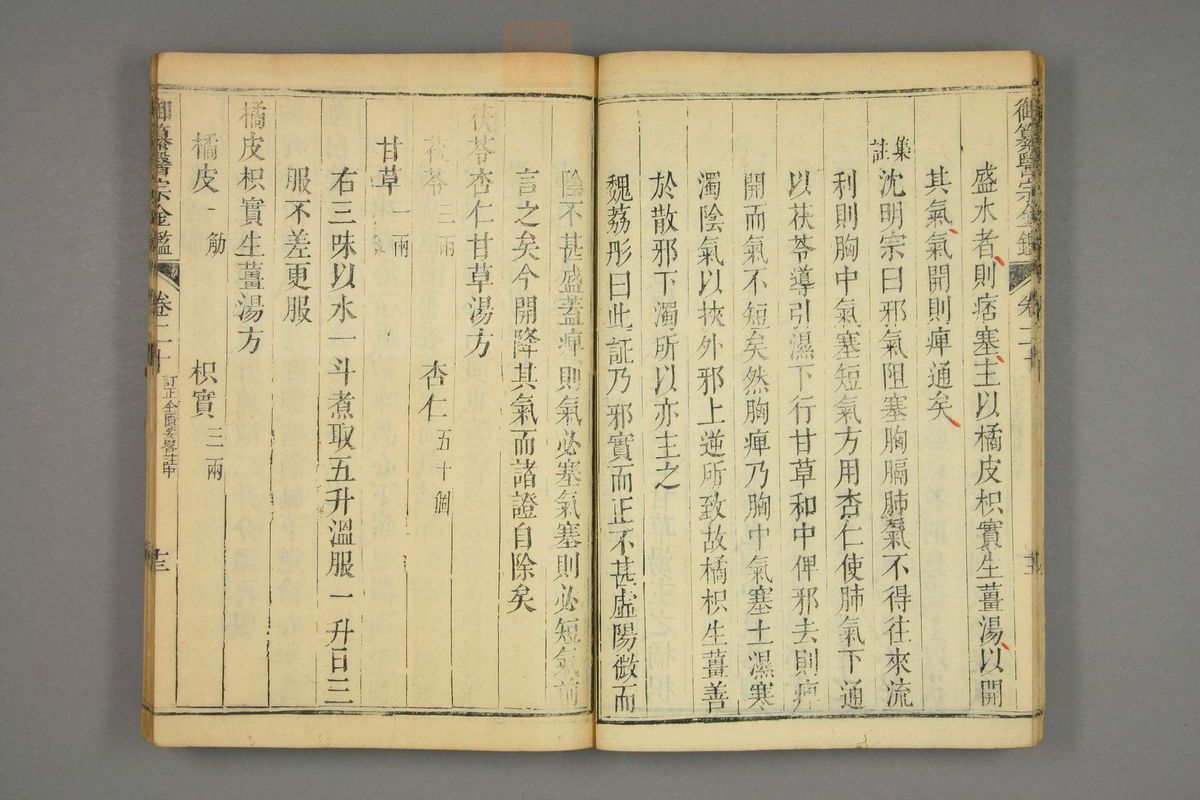 御纂醫宗金鑑 卷二十
盛水者則痞塞主以橘皮枳實生薑湯以開
其氣氣開則痺通矣
集註沈明宗曰邪氣阻塞胸膈肺氣不得往來流
利則胸中氣塞短氣方用杏仁使肺氣下通
以茯苓導引濕下行甘草和中俾邪去則痺
開而氣不短矣然胸痺乃胸中氣塞土濕寒
濁陰氣以挾外邪上逆所致故橘枳生薑善
於散邪下濁所以亦主之
魏荔彤曰此証乃邪實而正不甚虛陽微而
陰不甚盛蓋痺則氣必塞氣塞則必短氣前
言之矣今開降其氣而諸證自除矣
茯苓杏仁甘草湯方
茯苓三兩 杏仁五十個
甘草一兩
右三味以水一斗煮取五升溫服一升日三
服不差更服
橘皮枳實生薑湯方
橘皮一觔 枳實三兩
御纂醫宗金鑑 卷二十 訂正金匱要畧註中